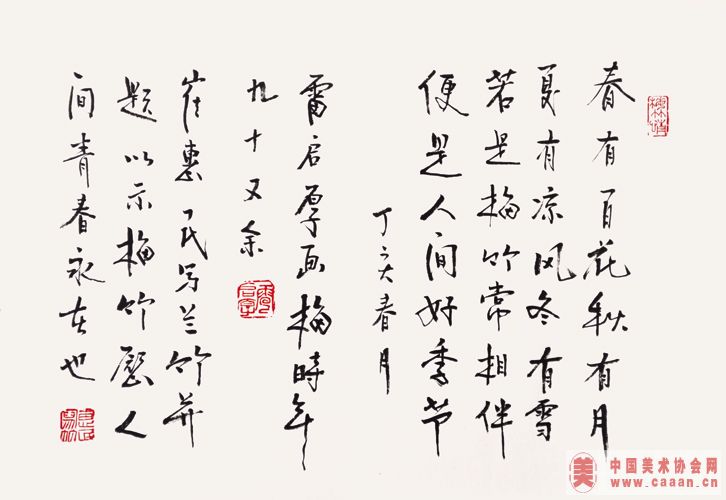 春有百花秋有月
夏有凉风冬有雪
若是梅竹常相伴
便是人间好季节
丁亥春月
雷启厚画梅時年
九十又余
崔惠民写兰竹并
题以示梅竹人
间青春永在也
美
中国美术协会网
www.caaan.cn